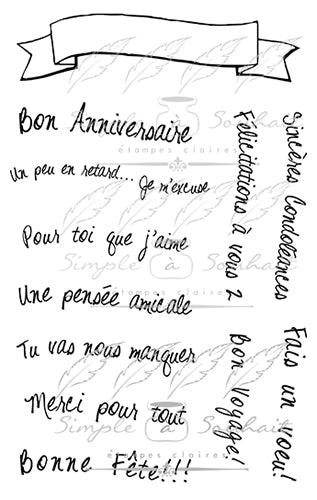 Bon Anniversaire
Un peu en retard... Je m'excuse
Pour toi que j'aime
Une pensée amicale
Tu vas nous manquer
Merci pour tout
Bonne Fête!!!
Félicitations à vous 2
Bon Voyage!
Sincères Condoléances
Fais un voeu!
Simple à Souhait
étampes claires
Simple à Souhait
étampes claires
Simple à Souhait
étampes claires